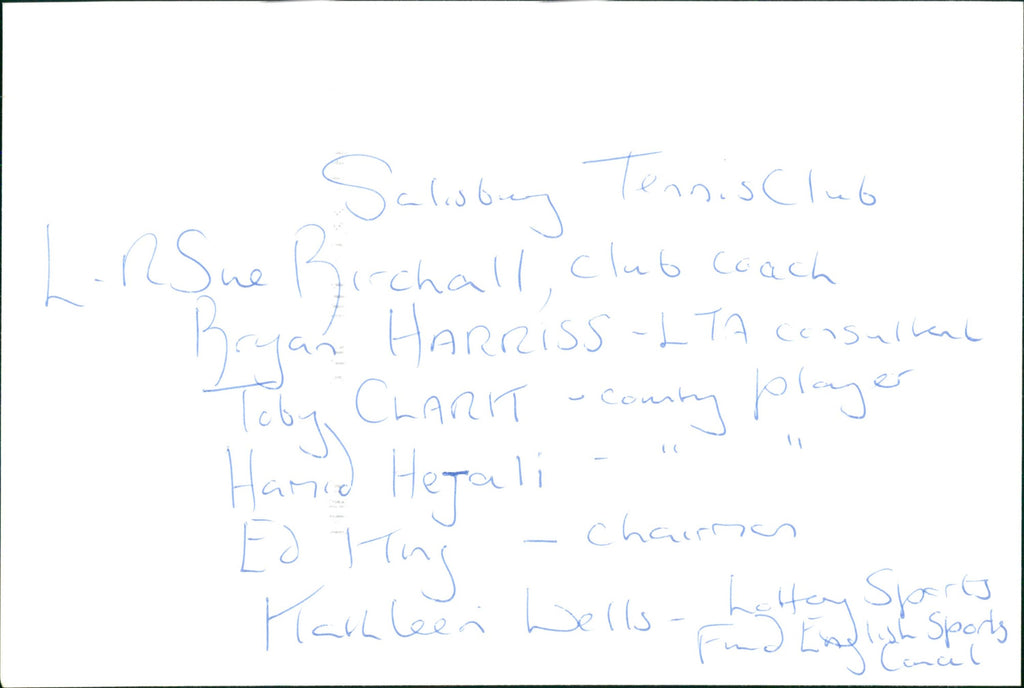 Salisbury Tennis Club
L-R Sue Birchall, club coach
Bryan HARRISS - LTA consultant
Toby CLARK - county player
Hamid Hejali - " "
Ed King - chairman
Kathleen Wells - Lottery Sports
Fund English Sports
Council